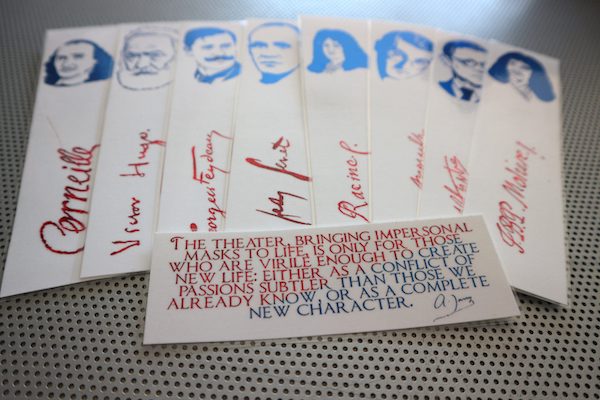 Corneille
Victor Hugo.
Georges Feydeau
Jean Genet
Racine
J.B.P. Moliere
THE THEATER, BRINGING IMPERSONAL
MASKS TO LIFE, IS ONLY FOR THOSE
WHO ARE VIRILE ENOUGH TO CREATE
NEW LIFE: EITHER AS A CONFLICT OF
PASSIONS SUBTLER THAN THOSE WE
ALREADY KNOW, OR AS A COMPLETE
NEW CHARACTER.